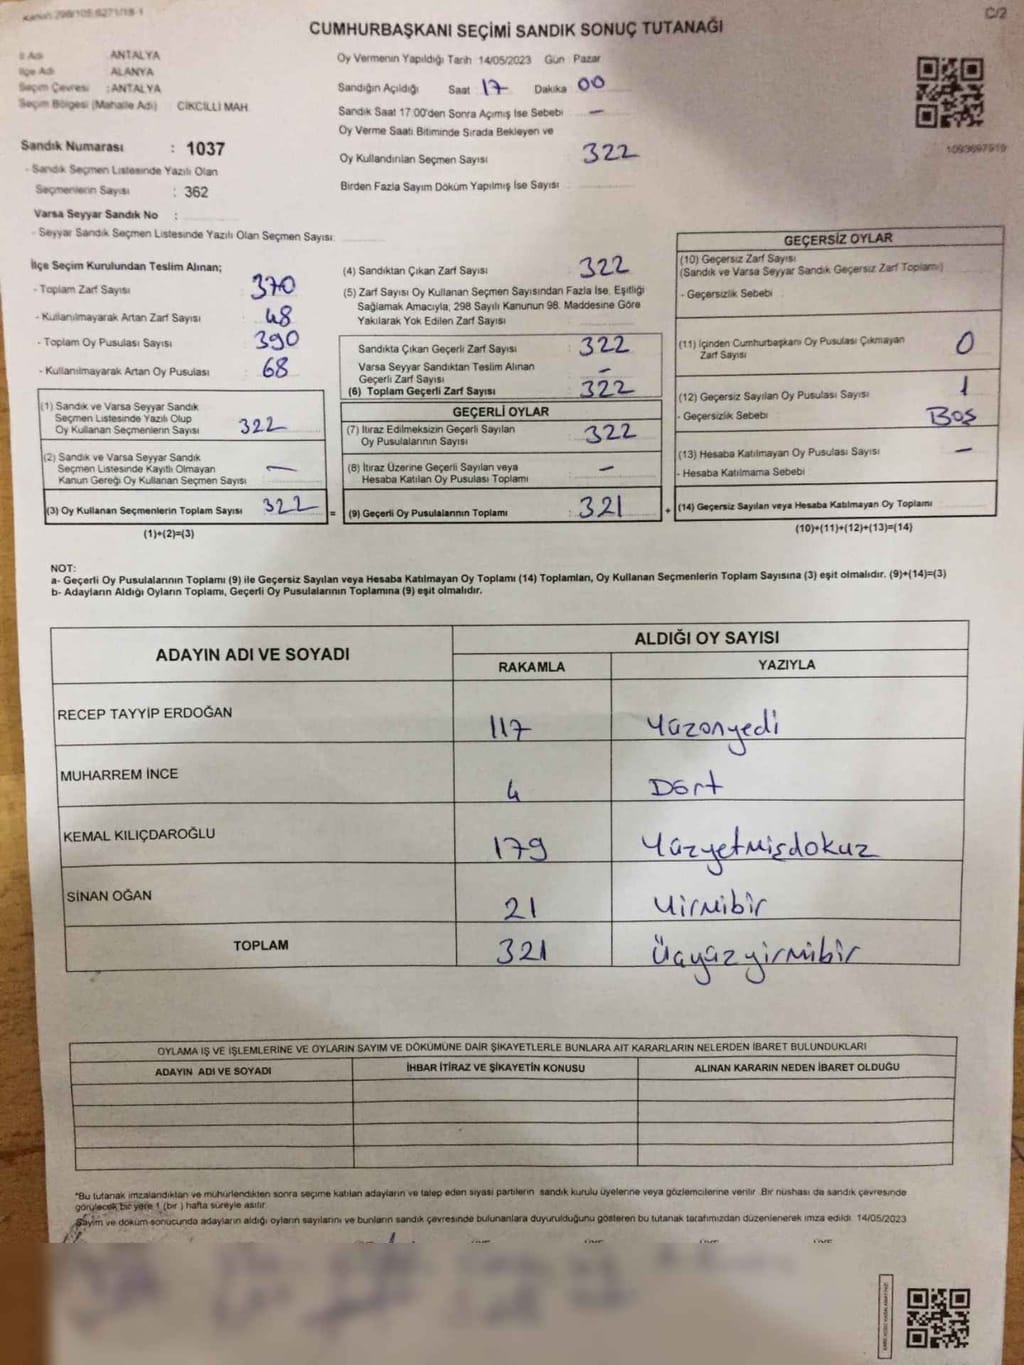 Kanun 298/105,6271/18-1
C/2
CUMHURBAŞKANI SEÇİMİ SANDIK SONUÇ TUTANAĞI
İl Adı ANTALYA
İlçe Adı ALANYA
Seçim Çevresi : ANTALYA
Seçim Bölgesi (Mahalle Adı) CİKCİLLİ MAH.
Sandık Numarası : 1037
- Sandık Seçmen Listesinde Yazılı Olan
Seçmenlerin Sayısı : 362
Varsa Seyyar Sandık No :
- Seyyar Sandık Seçmen Listesinde Yazılı Olan Seçmen Sayısı:
Oy Vermenin Yapıldığı Tarih 14/05/2023 Gün Pazar
Sandığın Açıldığı Saat 17 Dakika 00
Sandık Saat 17:00'den Sonra Açımış İse Sebebi —
Oy Verme Saati Bitiminde Sırada Bekleyen ve
Oy Kullandırılan Seçmen Sayısı 322
Birden Fazla Sayım Döküm Yapılmış İse Sayısı
1093697919
İlçe Seçim Kurulundan Teslim Alınan;
- Toplam Zarf Sayısı 370
- Kullanılmayarak Artan Zarf Sayısı : 48
- Toplam Oy Pusulası Sayısı 390
- Kullanılmayarak Artan Oy Pusulası 68
(1) Sandık ve Varsa Seyyar Sandık
Seçmen Listesinde Yazılı Olup
Oy Kullanan Seçmenlerin Sayısı : 322
(2) Sandık ve Varsa Seyyar Sandık
Seçmen Listesinde Kayıtlı Olmayan
Kanun Gereği Oy Kullanan Seçmen Sayısı —
(3) Oy Kullanan Seçmenlerin Toplam Sayısı 322 =
(1)+(2)=(3)
(4) Sandıktan Çıkan Zarf Sayısı 322
(5) Zarf Sayısı Oy Kullanan Seçmen Sayısından Fazla İse, Eşitliği
Sağlamak Amacıyla, 298 Sayılı Kanunun 98. Maddesine Göre
Yakılarak Yok Edilen Zarf Sayısı
Sandıkta Çıkan Geçerli Zarf Sayısı : 322
Varsa Seyyar Sandıktan Teslim Alınan
Geçerli Zarf Sayısı : —
(6) Toplam Geçerli Zarf Sayısı : 322
GEÇERLİ OYLAR
(7) İtiraz Edilmeksizin Geçerli Sayılan
Oy Pusulalarının Sayısı : 322
(8) İtiraz Üzerine Geçerli Sayılan veya
Hesaba Katılan Oy Pusulası Toplamı —
(9) Geçerli Oy Pusulalarının Toplamı : 321 +
GEÇERSİZ OYLAR
(10) Geçersiz Zarf Sayısı
(Sandık ve Varsa Seyyar Sandık Geçersiz Zarf Toplamı)
- Geçersizlik Sebebi
(11) İçinden Cumhurbaşkanı Oy Pusulası Çıkmayan
Zarf Sayısı 0
(12) Geçersiz Sayılan Oy Pusulası Sayısı 1
- Geçersizlik Sebebi Boş
(13) Hesaba Katılmayan Oy Pusulası Sayısı —
- Hesaba Katılmama Sebebi
(14) Geçersiz Sayılan veya Hesaba Katılmayan Oy Toplamı
(10)+(11)+(12)+(13)=(14)
NOT:
a- Geçerli Oy Pusulalarının Toplamı (9) ile Geçersiz Sayılan veya Hesaba Katılmayan Oy Toplamı (14) Toplamları, Oy Kullanan Seçmenlerin Toplam Sayısına (3) eşit olmalıdır. (9)+(14)=(3)
b- Adayların Aldığı Oyların Toplamı, Geçerli Oy Pusulalarının Toplamına (9) eşit olmalıdır.
ADAYIN ADI VE SOYADI ALDIĞI OY SAYISI
RAKAMLA YAZIYLA
RECEP TAYYİP ERDOĞAN 117 Yüzonyedi
MUHARREM İNCE 4 Dört
KEMAL KILIÇDAROĞLU 179 Yüzyetmişdokuz
SİNAN OĞAN 21 Yirmibir
TOPLAM 321 Üçyüzyirmibir
OYLAMA İŞ VE İŞLEMLERİNE VE OYLARIN SAYIM VE DÖKÜMÜNE DAİR ŞİKAYETLERLE BUNLARA AİT KARARLARIN NELERDEN İBARET BULUNDUKLARI
ADAYIN ADI VE SOYADI İHBAR İTİRAZ VE ŞİKAYETİN KONUSU ALINAN KARARIN NEDEN İBARET OLDUĞU
*Bu tutanak imzalandıktan ve mühürlendikten sonra seçime katılan adayların ve talep eden siyasi partilerin sandık kurulu üyelerine veya gözlemcilerine verilir. Bir nüshası da sandık çevresinde
görülecek bir yere 1 (bir) hafta süreyle asılır.
Sayım ve döküm sonucunda adayların aldığı oyların sayılarını ve bunların sandık çevresinde bulunanlara duyurulduğunu gösteren bu tutanak tarafımızdan düzenlenerek imza edildi. 14/05/2023